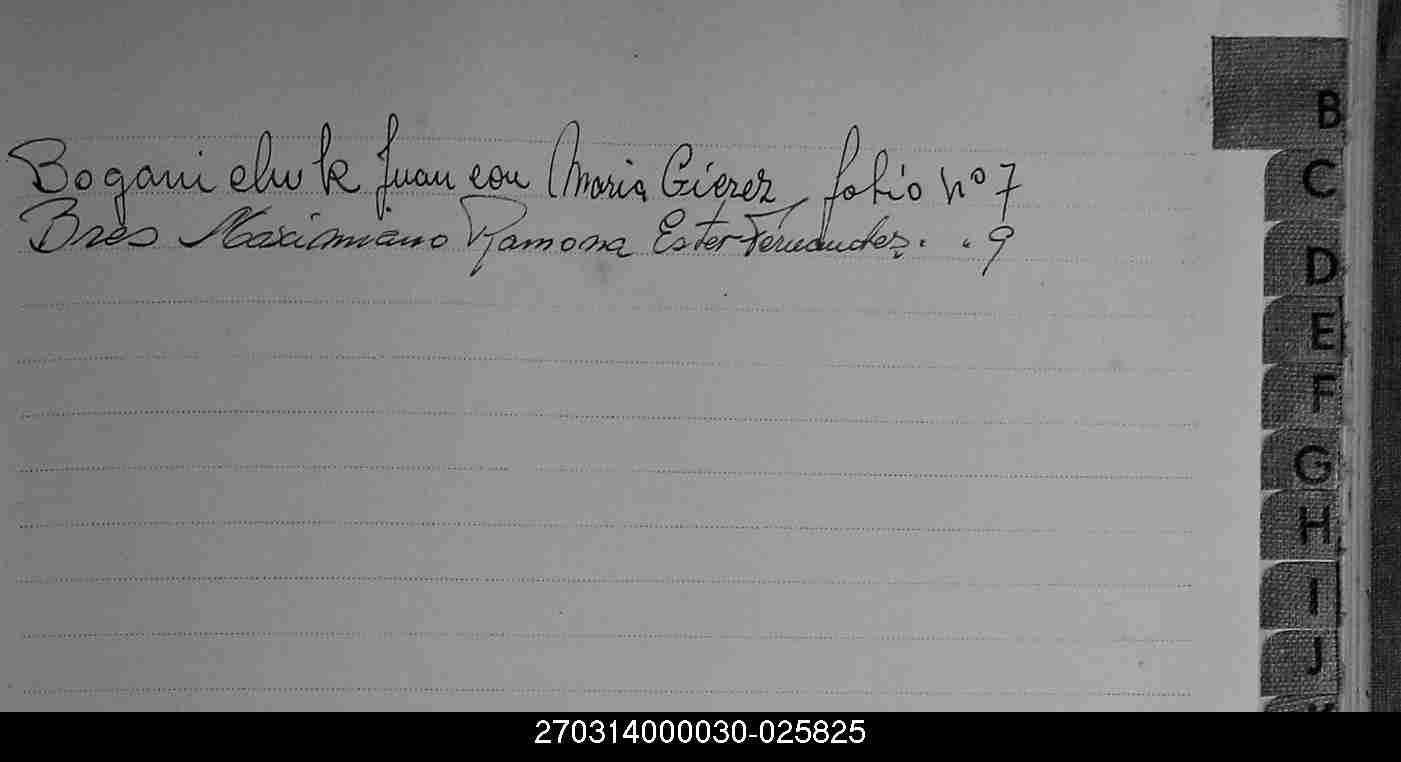 Boganichuk Juan con Maria Gierez folio nº 7
Bres Maximiano Ramona Ester Fernandez. " 9
B
C
D
E
F
G
H
I
J
270314000030-025825